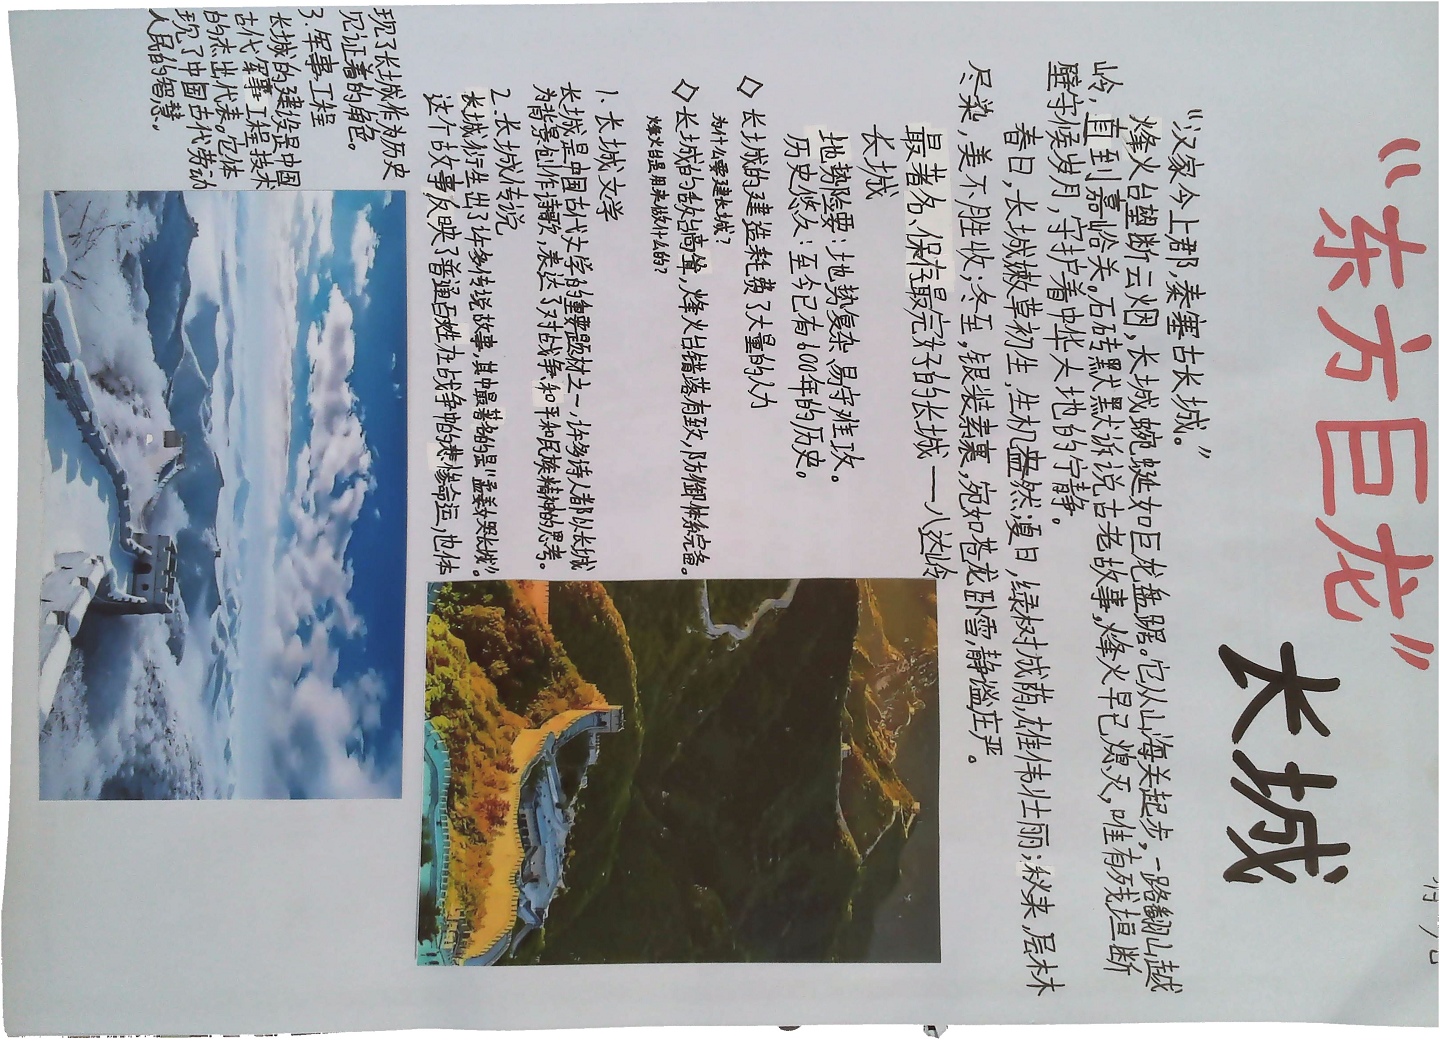 “东方巨龙”
长城
“汉家今上郡，秦塞古长城。”
烽火台垫断云烟，长城蜿蜒如巨龙盘踞。它从山海关起步，一路翻山越
岭，直到嘉峪关。石砖黑默默大诉说古老故事，烽火早已熄灭，唯有残垣断
壁守候岁月，守护着中华大地的宁静。
春日，长城被草初生，生机盎然；夏日，绿树成荫，雄伟壮丽；秋来，层林
尽染，美不胜收；冬至，银装素裹，宛如苍龙卧雪，静谧庄严。
最著名、保存最完好的长城——八达岭
长城
地势险要：地势复杂，易守难攻。
历史悠久：至今已有600年的历史。
◇长城的建造耗费了大量的人力
为什么要建长城？
◇长城的敌台高耸，烽火台错落有致，防御体系完备。
烽火台是用来做什么的？
1.长城文学
长城是中国古代文学的重要题材之一，许多诗人都以长城
为背景创作诗歌，表达了对战争、和平和民族精神的思考。
2.长城传说
长城衍生出了许多传说故事，其中最著名的是“孟姜女哭长城”。
这个故事反映了普通百姓在战争中的悲惨命运，也体
现了长城作为历史
见证着的角色。
3.军事工程
长城的建设是中国
古代军事工程技术
的杰出代表。它体
现了中国古代劳动
人民的智慧。